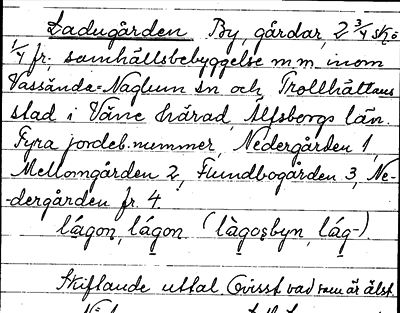 Ladugården By, gårdar, 2 3/4 sk. o
1/4 fr; samhällsbebyggelse m.m. inom
Vassända-Naglum sn och Trollhättans
stad i Väne härad, Älfsborgs län.
Fyra jordeb.nummer, Nedergården 1,
Mellomgården 2, Fiundbogården 3, Ne-
-dergården fr. 4
lágon, lágon (làgosbyn, lág-).
Skiftande uttal. Ovisst vad som är älst.